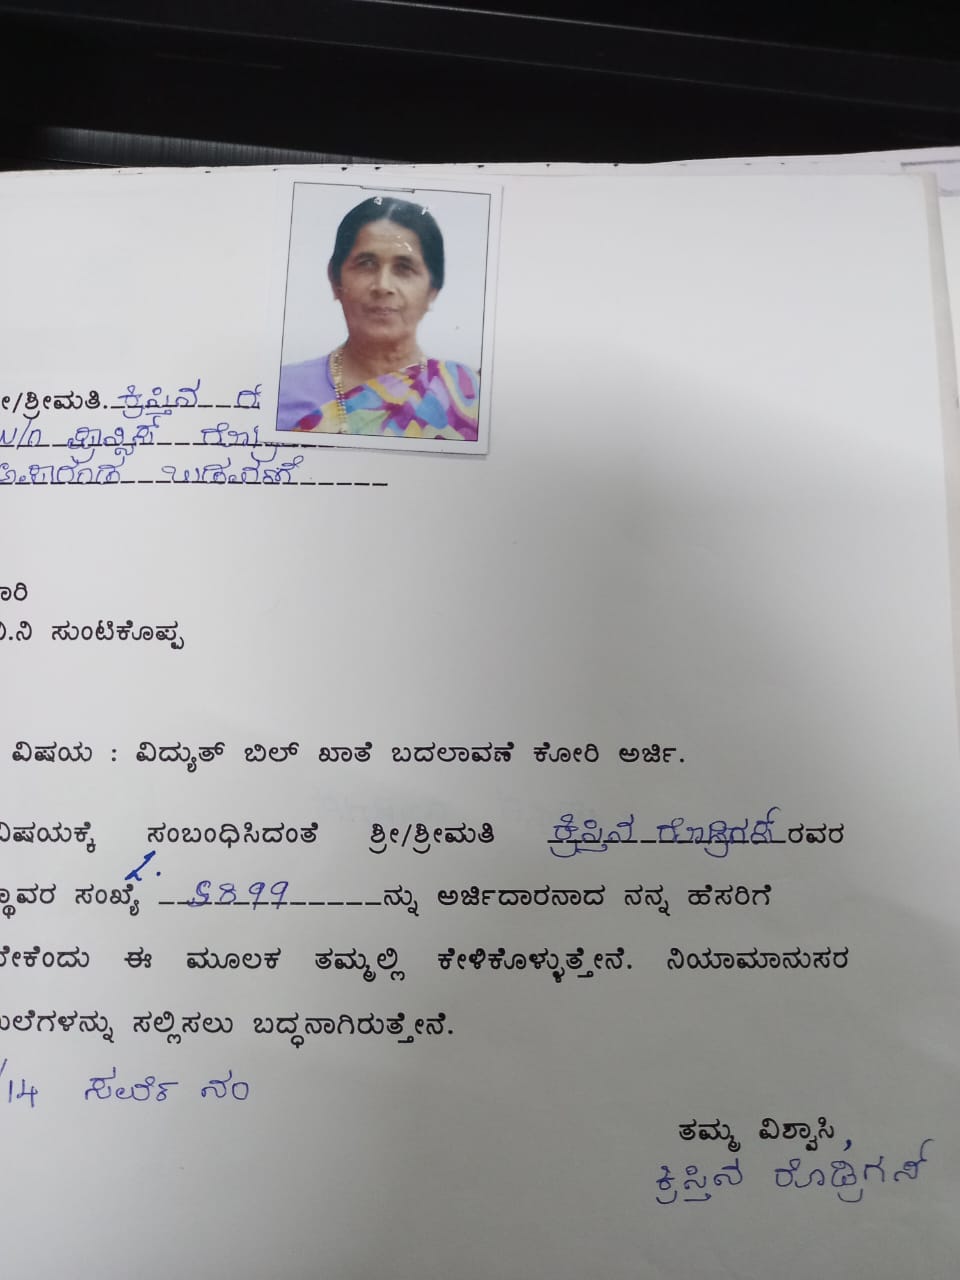 ಶ್ರೀ/ಶ್ರೀಮತಿ. ಕ್ರಿಸ್ತಿನ
ರೊಡ್ರಿ
ಸುಂಟಿಕೊಪ್ಪ
ವಿಷಯ : ವಿದ್ಯುತ್ ಬಿಲ್ ಖಾತೆ ಬದಲಾವಣೆ ಕೋರಿ ಅರ್ಜಿ.
ವಿಷಯಕ್ಕೆ ಸಂಬಂಧಿಸಿದಂತೆ ಶ್ರೀ/ಶ್ರೀಮತಿ ಕ್ರಿಸ್ತಿನ ರೊಡ್ರಿಗಸ್ ರವರ
L.
ಸ್ಥಾವರ ಸಂಖ್ಯೆ 5899 ನ್ನು ಅರ್ಜಿದಾರನಾದ ನನ್ನ ಹೆಸರಿಗೆ
ಬೇಕೆಂದು ಈ ಮೂಲಕ ತಮ್ಮಲ್ಲಿ ಕೇಳಿಕೊಳ್ಳುತ್ತೇನೆ. ನಿಯಾಮಾನುಸರ
ಸಲ್ಲಿಸಲು ಬದ್ಧನಾಗಿರುತ್ತೇನೆ.
/14 ಸರ್ವೆ ನಂ
ತಮ್ಮ ವಿಶ್ವಾಸಿ,
ಕ್ರಿಸ್ತಿನ ರೊಡ್ರಿಗಸ್